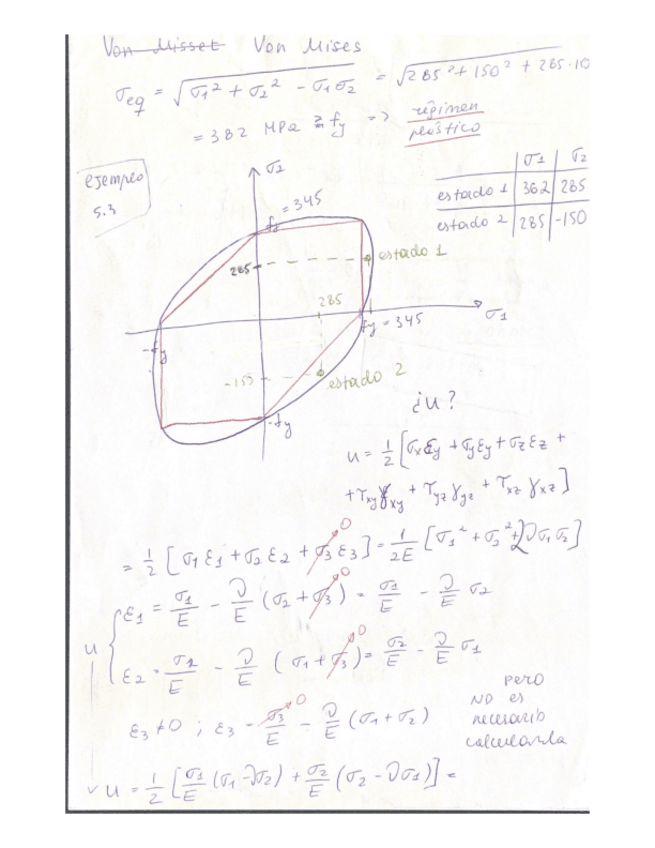 Von Misset Von Mises
σeq = √(σ1² + σ2² - σ1σ2) = √(285² + 150² + 285·10
= 382 MPa ≥ fy => régimen
plástico
ejemplo
5.3
σ1 σ2
estado 1 362 285
estado 2 285 -150
σ2
fy = 345
285
estado 1
285
σ1
-fy
fy = 345
-153
estado 2
-fy
¿u?
u = 1/2 [σxεy + σyεy + σzεz +
+ τxy γxy + τyz γyz + τxz γxz]
= 1/2 [σ1 ε1 + σ2 ε2 + σ3 ε3] = 1/2E [σ1² + σ2² + 2νσ1σ2]
0
u
ε1 = σ1/E - ν/E (σ2 + σ3) = σ1/E - ν/E σ2
0
ε2 = σ2/E - ν/E (σ1 + σ3) = σ2/E - ν/E σ1
0
ε3 ≠ 0 ; ε3 - σ3/E - ν/E (σ1 + σ2)
0
pero
NO es
necesario
calcularla
u = 1/2 [σ1/E (σ1 - νσ2) + σ2/E (σ2 - νσ1)] =